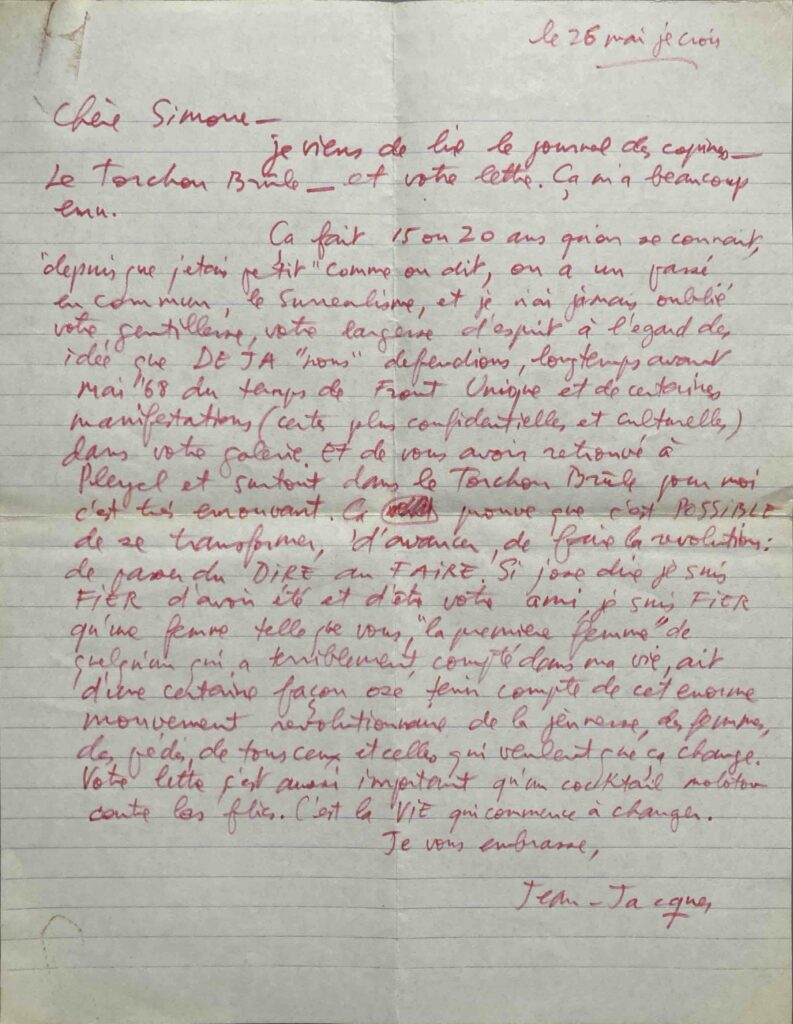 le 26 mai je crois
Chère Simone —
je viens de lire le journal des copines —
Le Torchon Brûle — et votre lettre. Ça m'a beaucoup
emu.
Ça fait 15 ou 20 ans qu'on se connait,
"depuis que j'etais petit" comme on dit, on a un passé
en commun, le Surrealisme, et je n'ai jamais oublié
votre gentillesse, votre largesse d'esprit à l'egard des
idée que DEJA "nous" defendions, longtemps avant
mai "68 du temps de Front Unique et de certaines
manifestations (certes plus confidentielles et culturelles)
dans votre galerie. Et de vous avoir retrouvé à
Pleyel et surtout dans le Torchon Brûle pour moi
c'est très emouvant. Ça prouve que c'est POSSIBLE
de se transformer, d'avancer, de faire la revolution:
de passer du DIRE au FAIRE. Si j'ose dire je suis
FIER d'avoir été et d'être votre ami, je suis FIER
qu'une femme telle que vous, "la première femme" de
quelqu'un qui a terriblement compté dans ma vie, ait
d'une certaine façon osé tenir compte de cet enorme
mouvement revolutionnaire de la jeunesse, des femmes,
des pédés, de tous ceux et celles qui veulent que ça change.
Votre lettre c'est aussi important qu'un cocktail molotov
contre les flics. C'est la ViE qui commence à changer.
Je vous embrasse,
Jean-Jacques